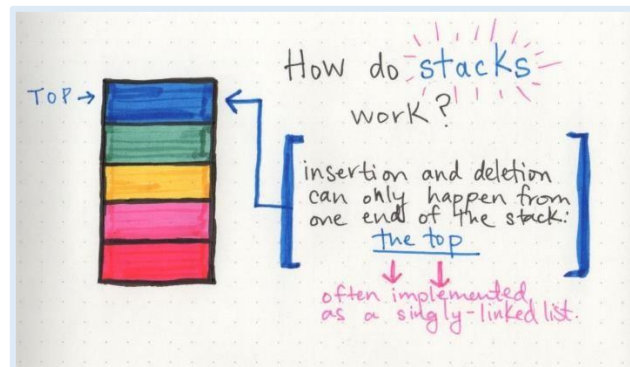 TOP →
How do stacks
work?
insertion and deletion
can only happen from
one end of the stack:
the top
often implemented
as a singly-linked list.